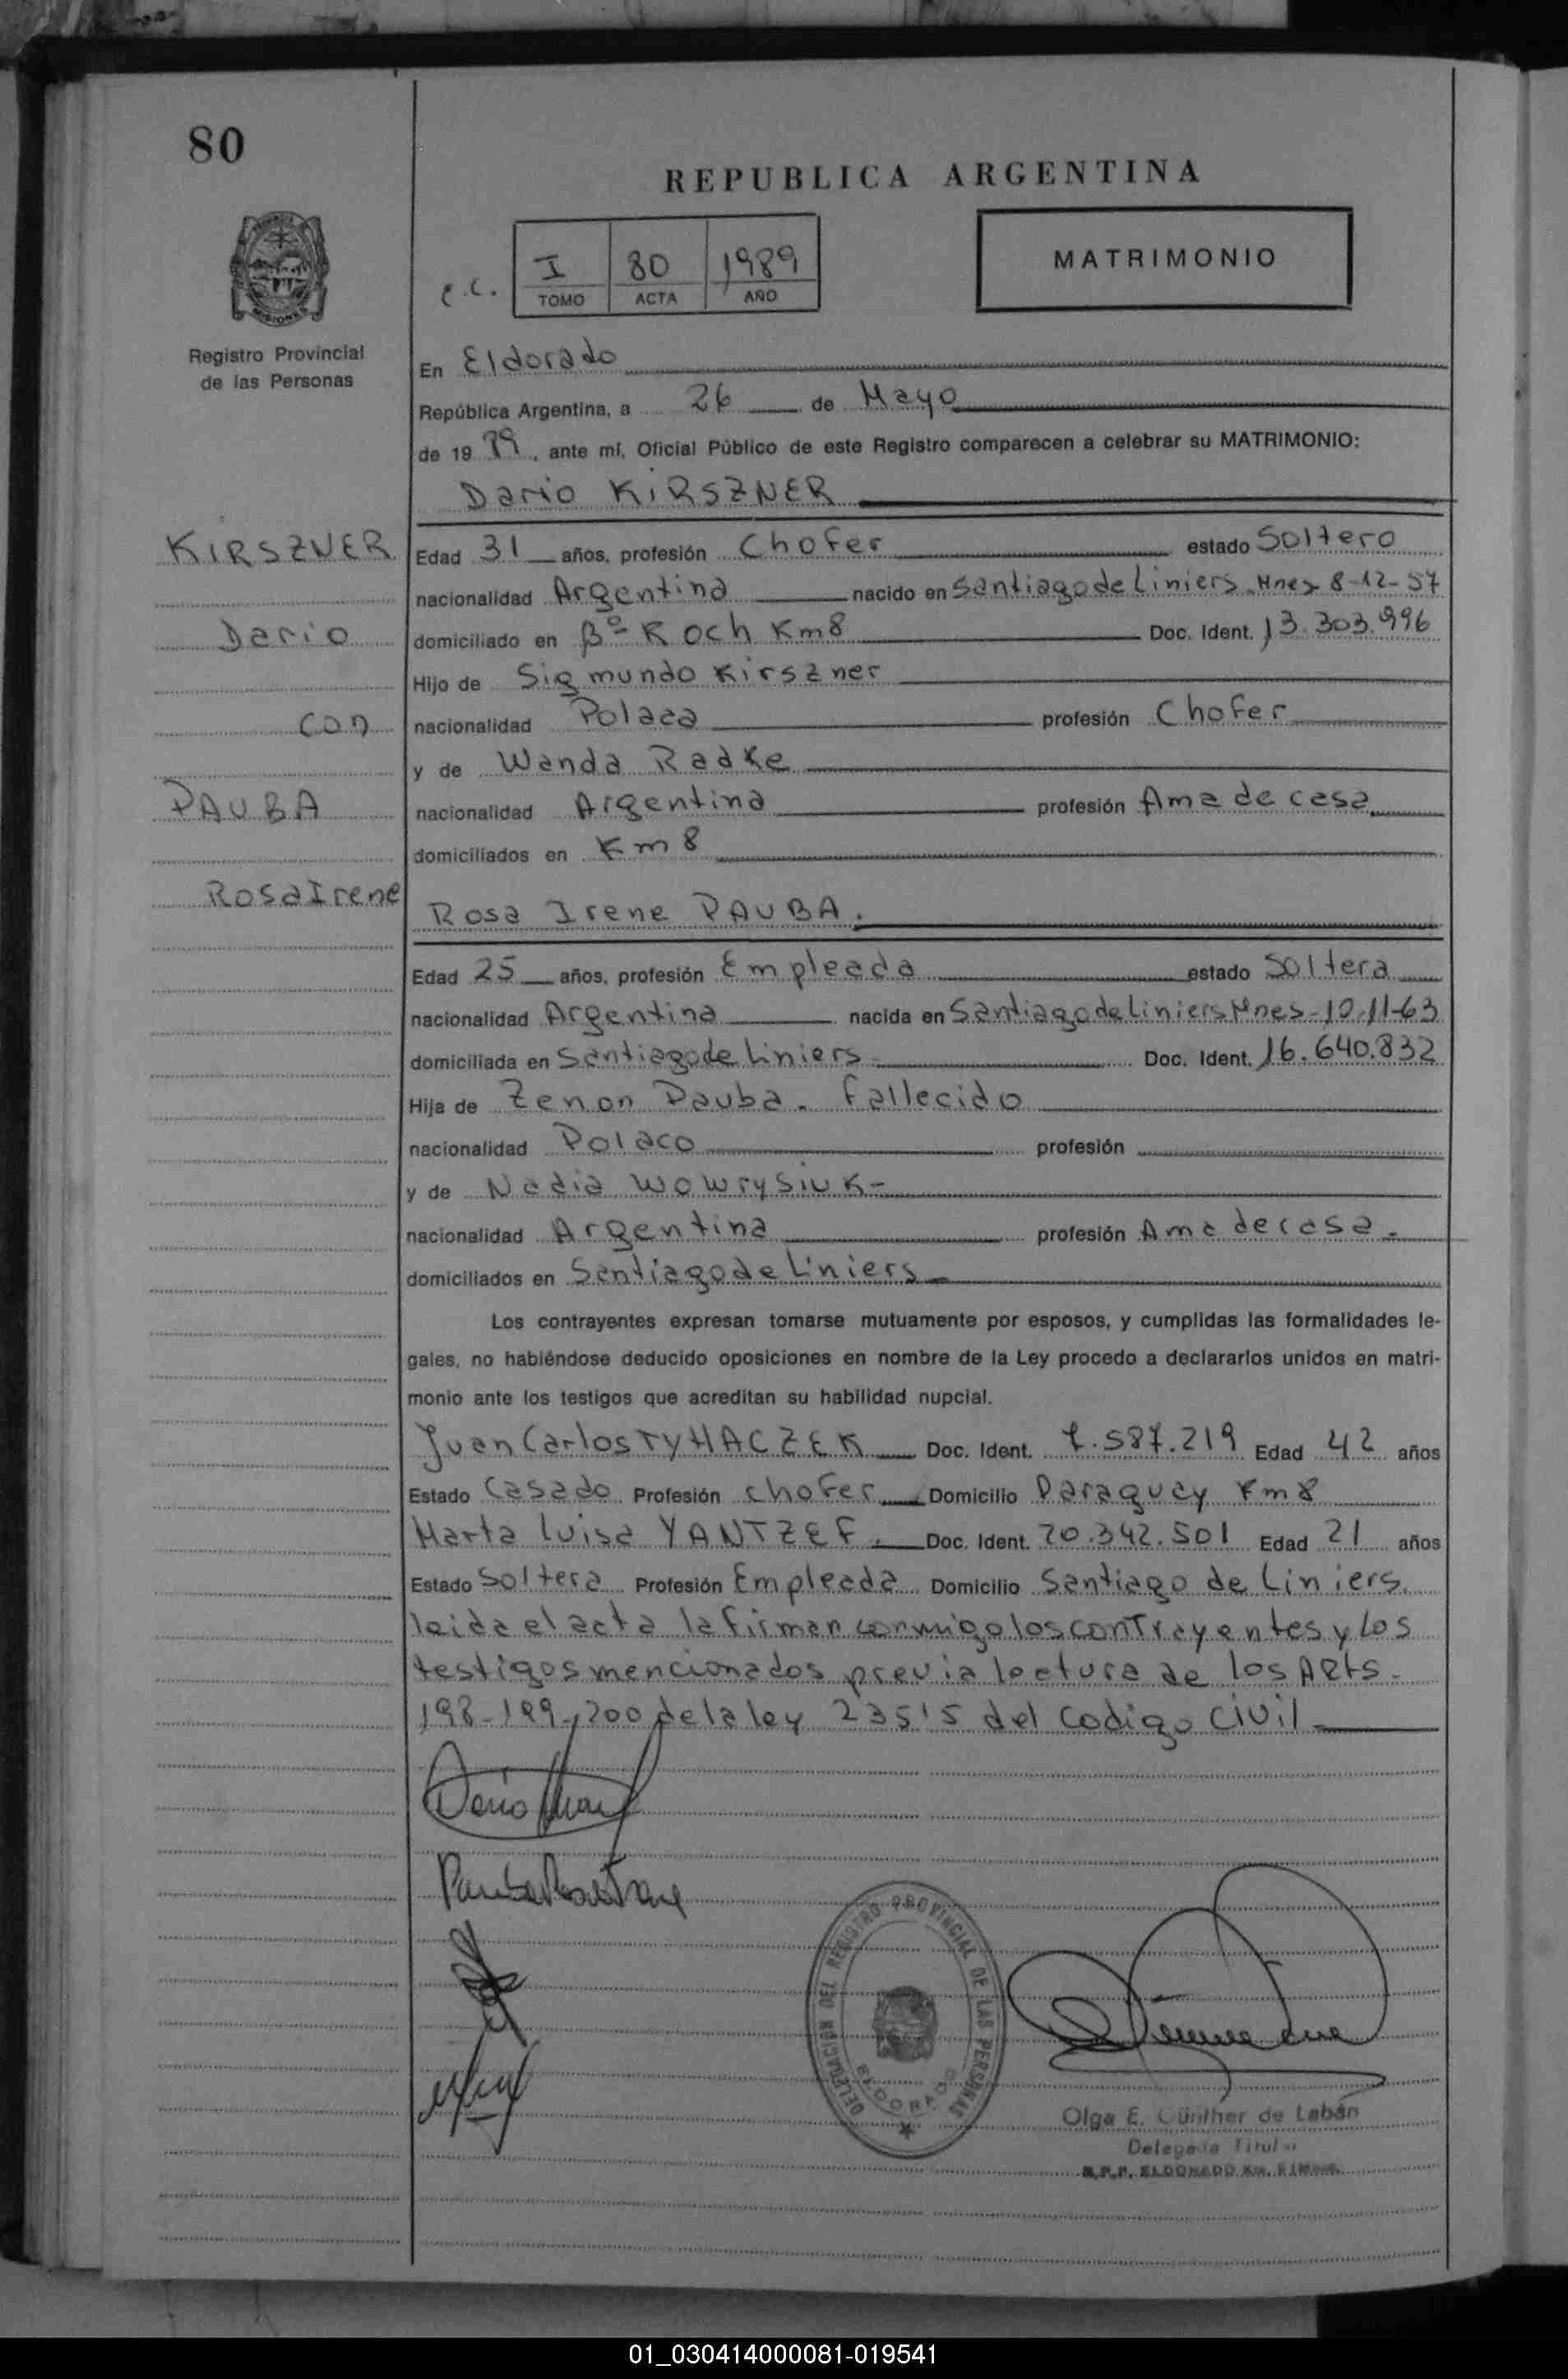 80
REPUBLICA ARGENTINA
MISIONES
Registro Provincial
de las Personas
C.C.
I 80 1989
TOMO ACTA AÑO
MATRIMONIO
En Eldorado
República Argentina, a 26 de Mayo
de 19 89, ante mí, Oficial Público de este Registro comparecen a celebrar su MATRIMONIO:
Dario KIRSZNER
KIRSZNER
Dario
con
PAUBA
Rosa Irene
Edad 31 años, profesión Chofer estado Soltero
nacionalidad Argentina nacido en Santiago de Liniers. Mnes 8-12-57
domiciliado en Bº Koch Km8 Doc. Ident. 13.303.996
Hijo de Sigmundo Kirszner
nacionalidad Polaca profesión Chofer
y de Wanda Radke
nacionalidad Argentina profesión Ama de casa
domiciliados en Km 8
Rosa Irene PAUBA.
Edad 25 años, profesión Empleada estado Soltera
nacionalidad Argentina nacida en Santiago de Liniers Mnes-12-11-63
domiciliada en Santiago de Liniers Doc. Ident. 16.640.832
Hija de Zenon Pauba. Fallecido
nacionalidad Polaco profesión
y de Nadia Wowrysiuk-
nacionalidad Argentina profesión Ama de casa.
domiciliados en Santiago de Liniers
Los contrayentes expresan tomarse mutuamente por esposos, y cumplidas las formalidades le-
gales, no habiéndose deducido oposiciones en nombre de la Ley procedo a declararlos unidos en matri-
monio ante los testigos que acreditan su habilidad nupcial.
Juan Carlos TYHACZEK Doc. Ident. 7.587.219 Edad 42 años
Estado Casado Profesión chofer Domicilio Paraguay Km8
Marta Luisa YANTZEF. Doc. Ident. 20.342.501 Edad 21 años
Estado Soltera Profesión Empleada Domicilio Santiago de Liniers.
leida el acta la firman conmigo los contrayentes y los
testigos mencionados previa lectura de los Arts-
198-199-200 de la ley 23515 del Codigo Civil
Pauba Rosa Irene
DELEGACION DEL REGISTRO PROVINCIAL DE LAS PERSONAS
ELDORADO
Olga E. Günther de Labán
Delegada Titular
R.P.P. ELDORADO
01_030414000081-019541